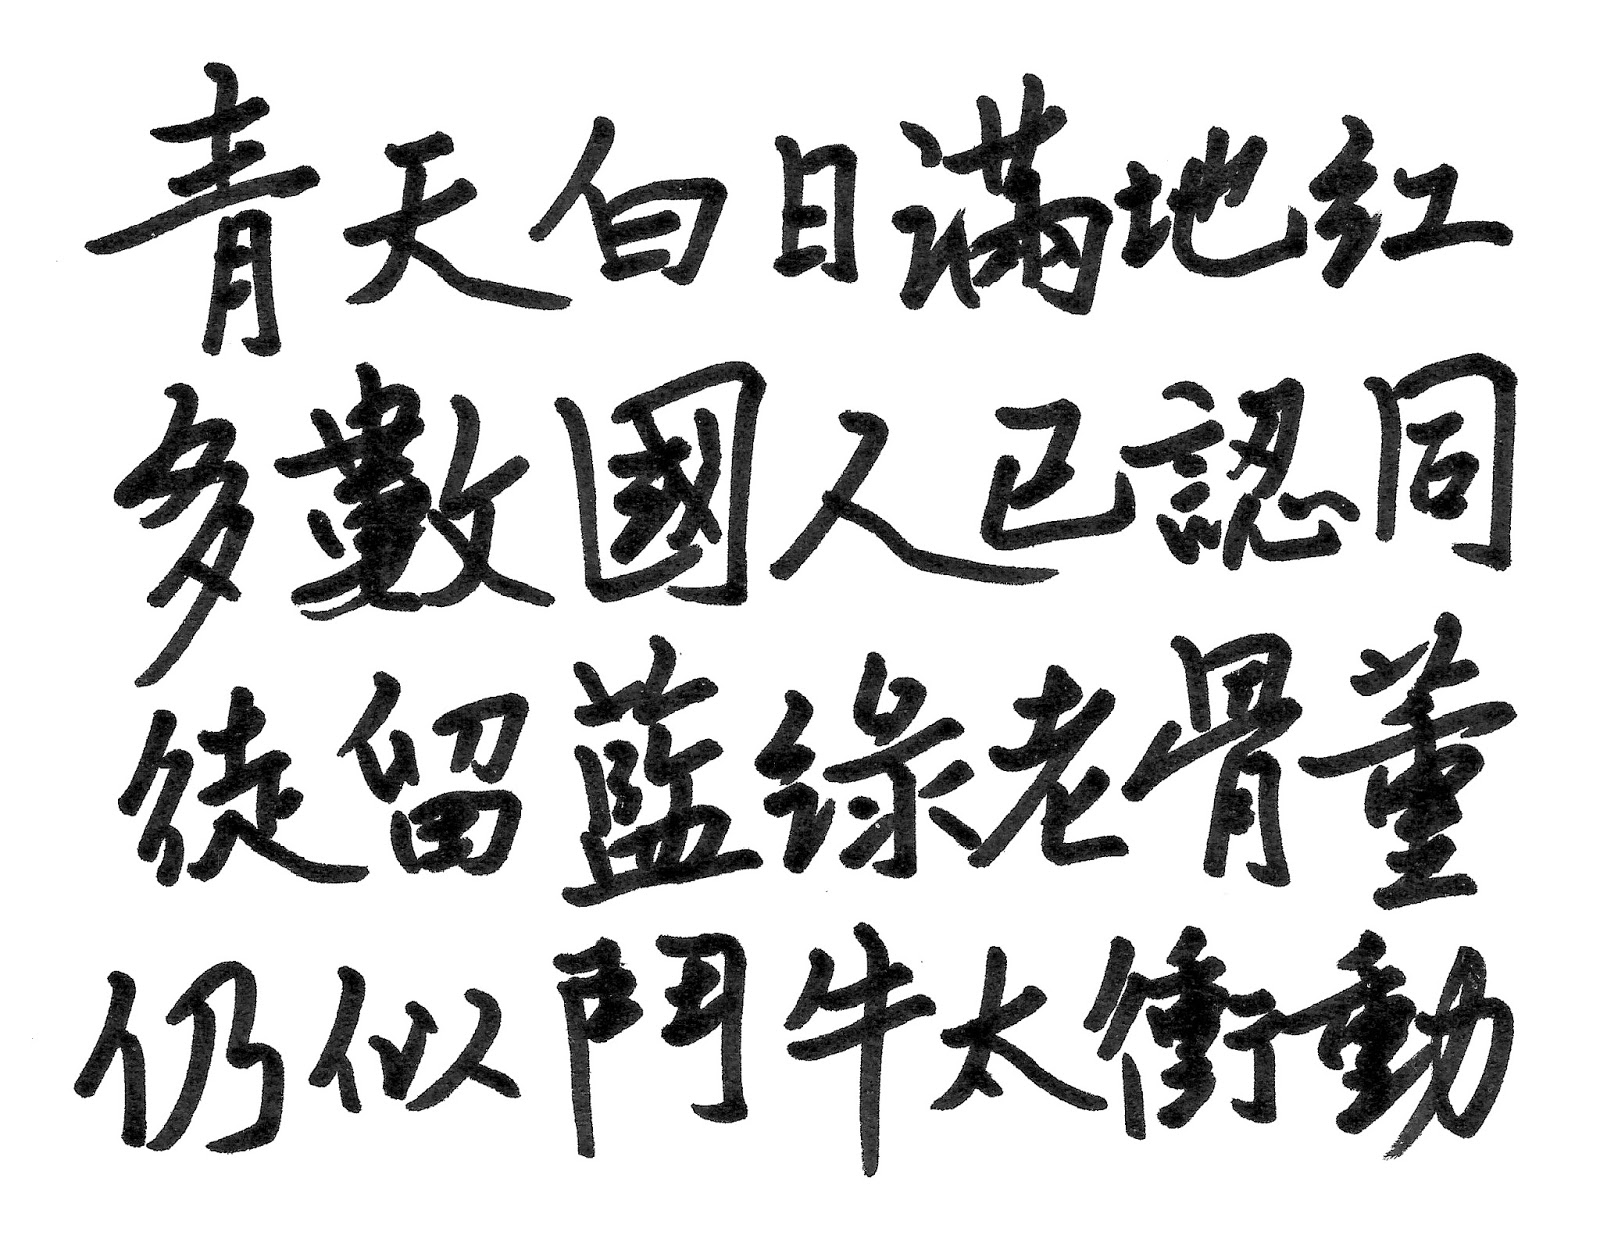 青天白日滿地紅
多數國人已認同
徒留藍綠老骨董
仍似鬥牛太衝動